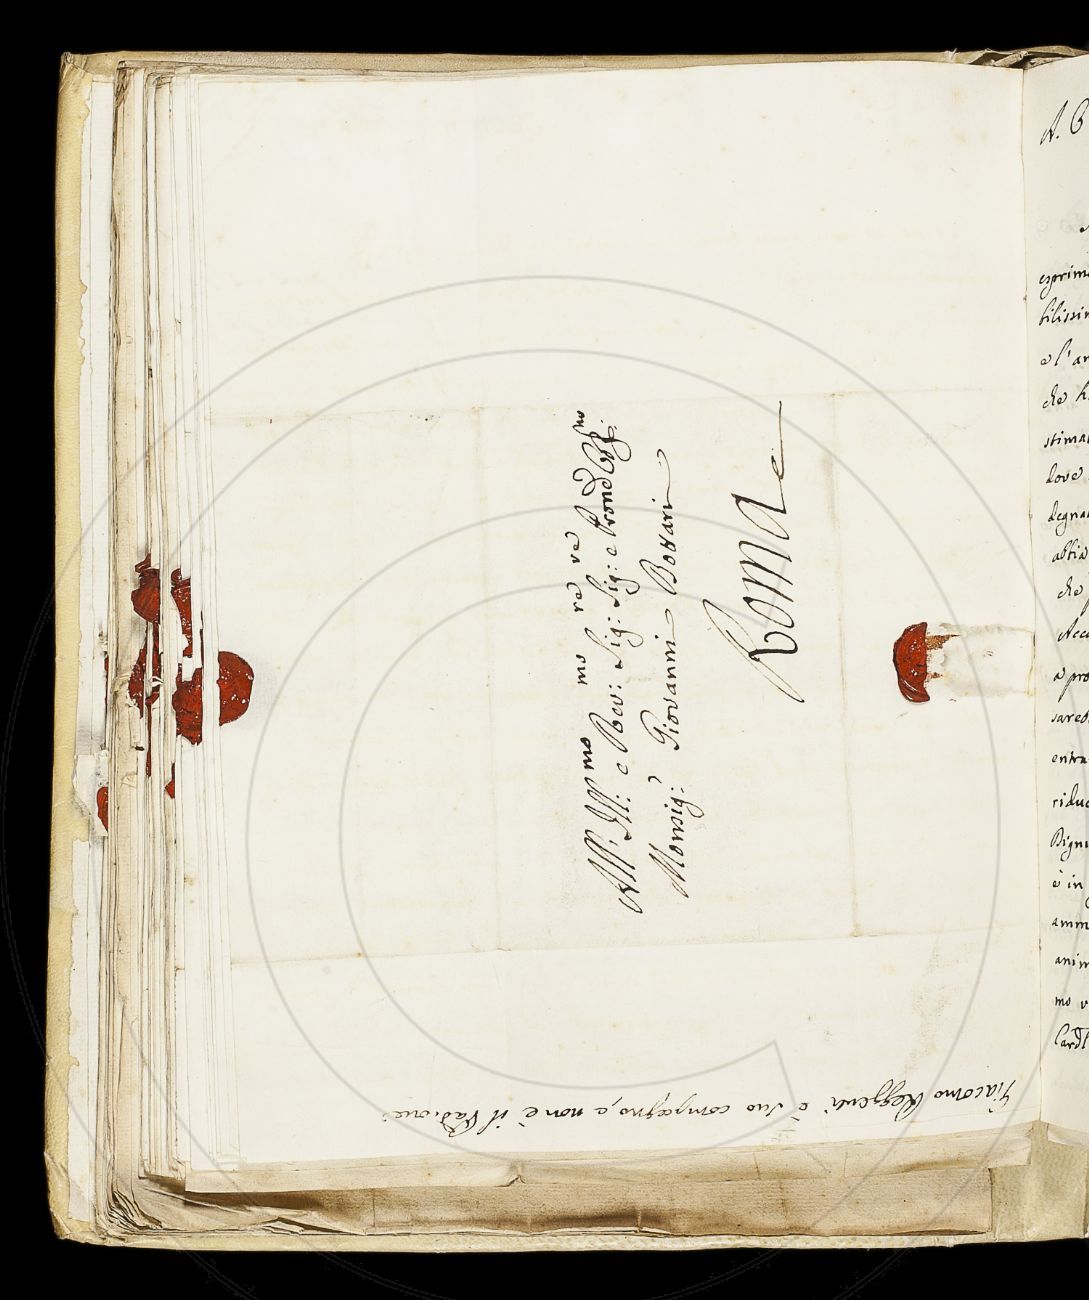 All' Ill:mo e Rev:mo Sig:re Sig:re e Prone Col:mo
Monsig:e Giovanni Bottari
Roma
Giacomo è suo compagno, e non è il Padrone
A.
esprim
bilissi
e l'an
che
stima
dove
degna
abbia
che
a pro
sareb
entra
riduc
Digni
è in
amm
anim
mo v
Cardl